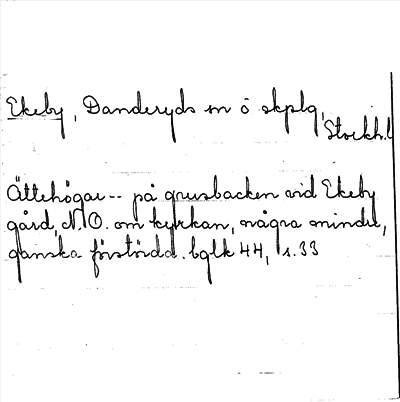 Ekeby, Danderyds sn o skplg,
Stockh.l
Ättehögar -- på grusbacken vid Ekeby
gård, N.O. om kyrkan, några mindre,
ganska förstörda. bglk 44, s.33